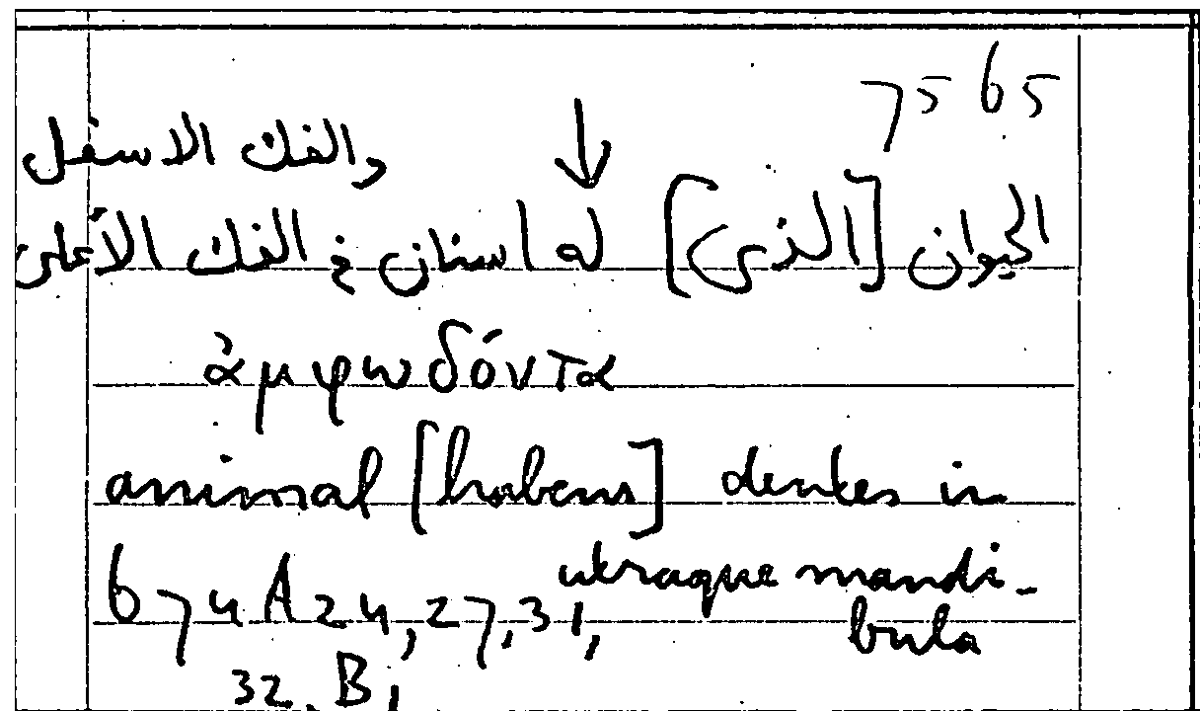 7565
والفك الاسفل
↓
الحيوان [الذى] له اسنان فى الفك الأعلى
ἀμφωδόντα
animal [habens] dentes in
utraque mandi-
bula
674A24,27,31,
32, B1